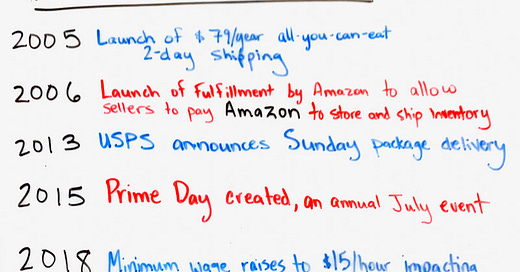 2005 Launch of $79/year all-you-can-eat
2-day shipping
2006 Launch of Fulfillment by Amazon to allow
sellers to pay Amazon to store and ship inventory
2013 USPS announces Sunday package delivery
2015 Prime Day created, an annual July event
2018 Minimum wage raises to $15/hour impacting